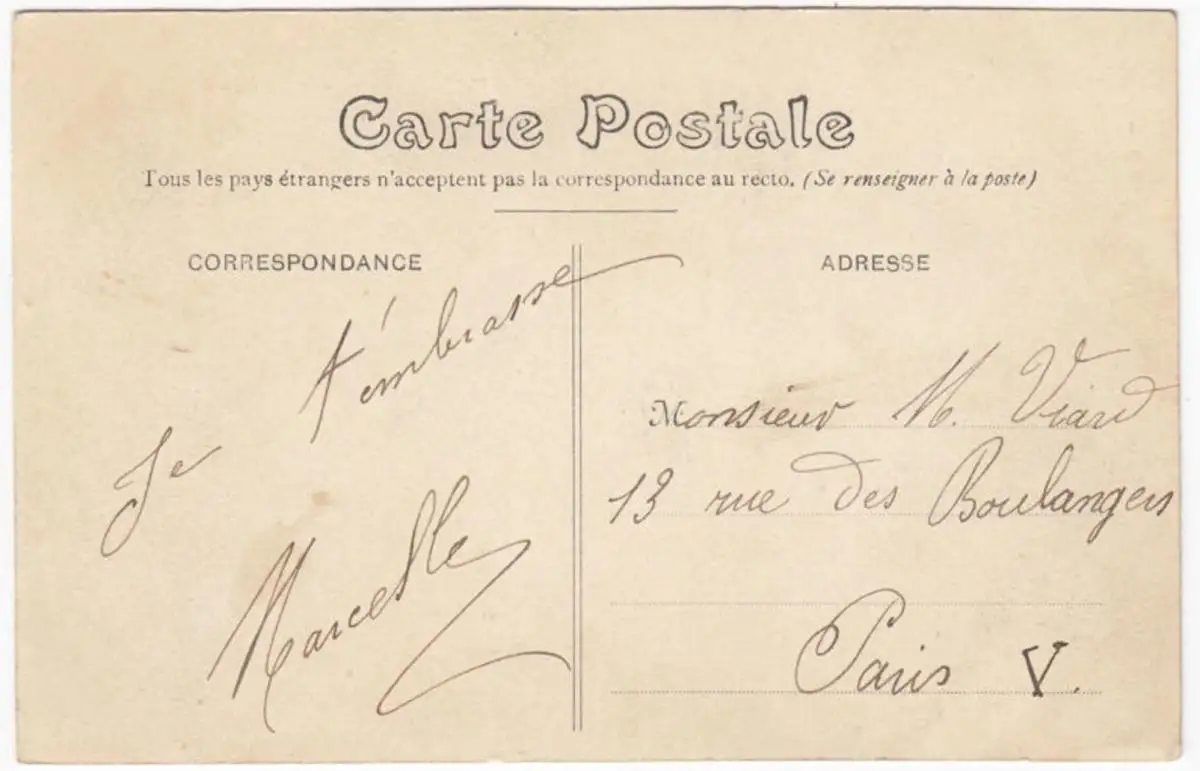 Carte Postale
Tous les pays étrangers n'acceptent pas la correspondance au recto. (Se renseigner à la poste)
CORRESPONDANCE
Je t'embrasse
Marcelle
ADRESSE
Monsieur M. Viard
13 rue des Boulangers
Paris V.